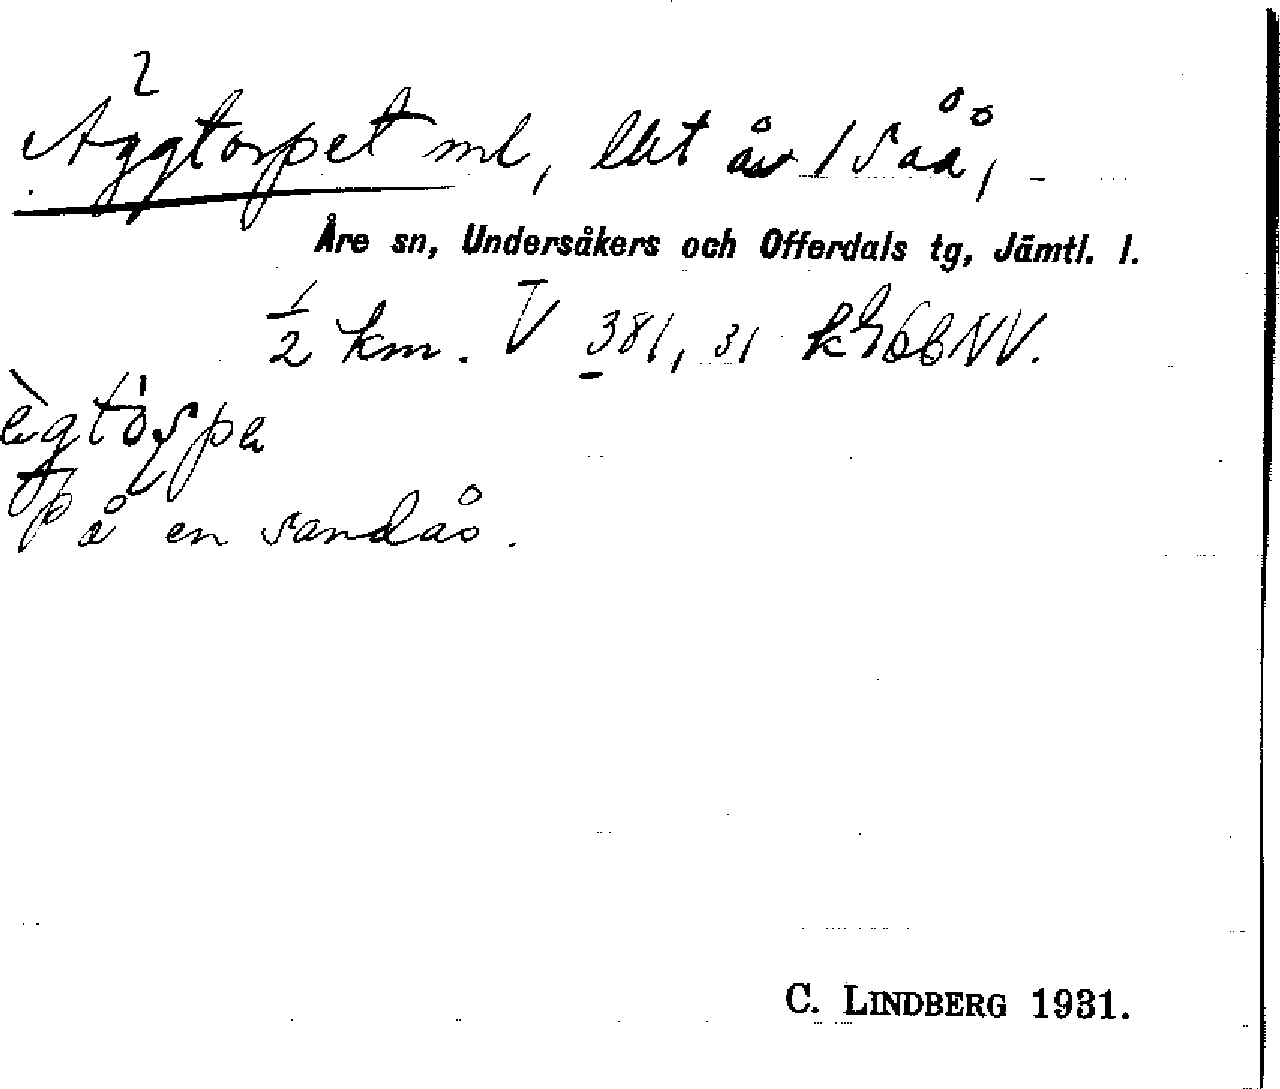 2
Äggtorpet ml, lht åv 1 Såå,
Åre sn, Undersåkers och Offerdals tg, Jämtl. l.
1/2 km. V 381, 31
ègtòrpe
På en sandås.
C. LINDBERG 1931.